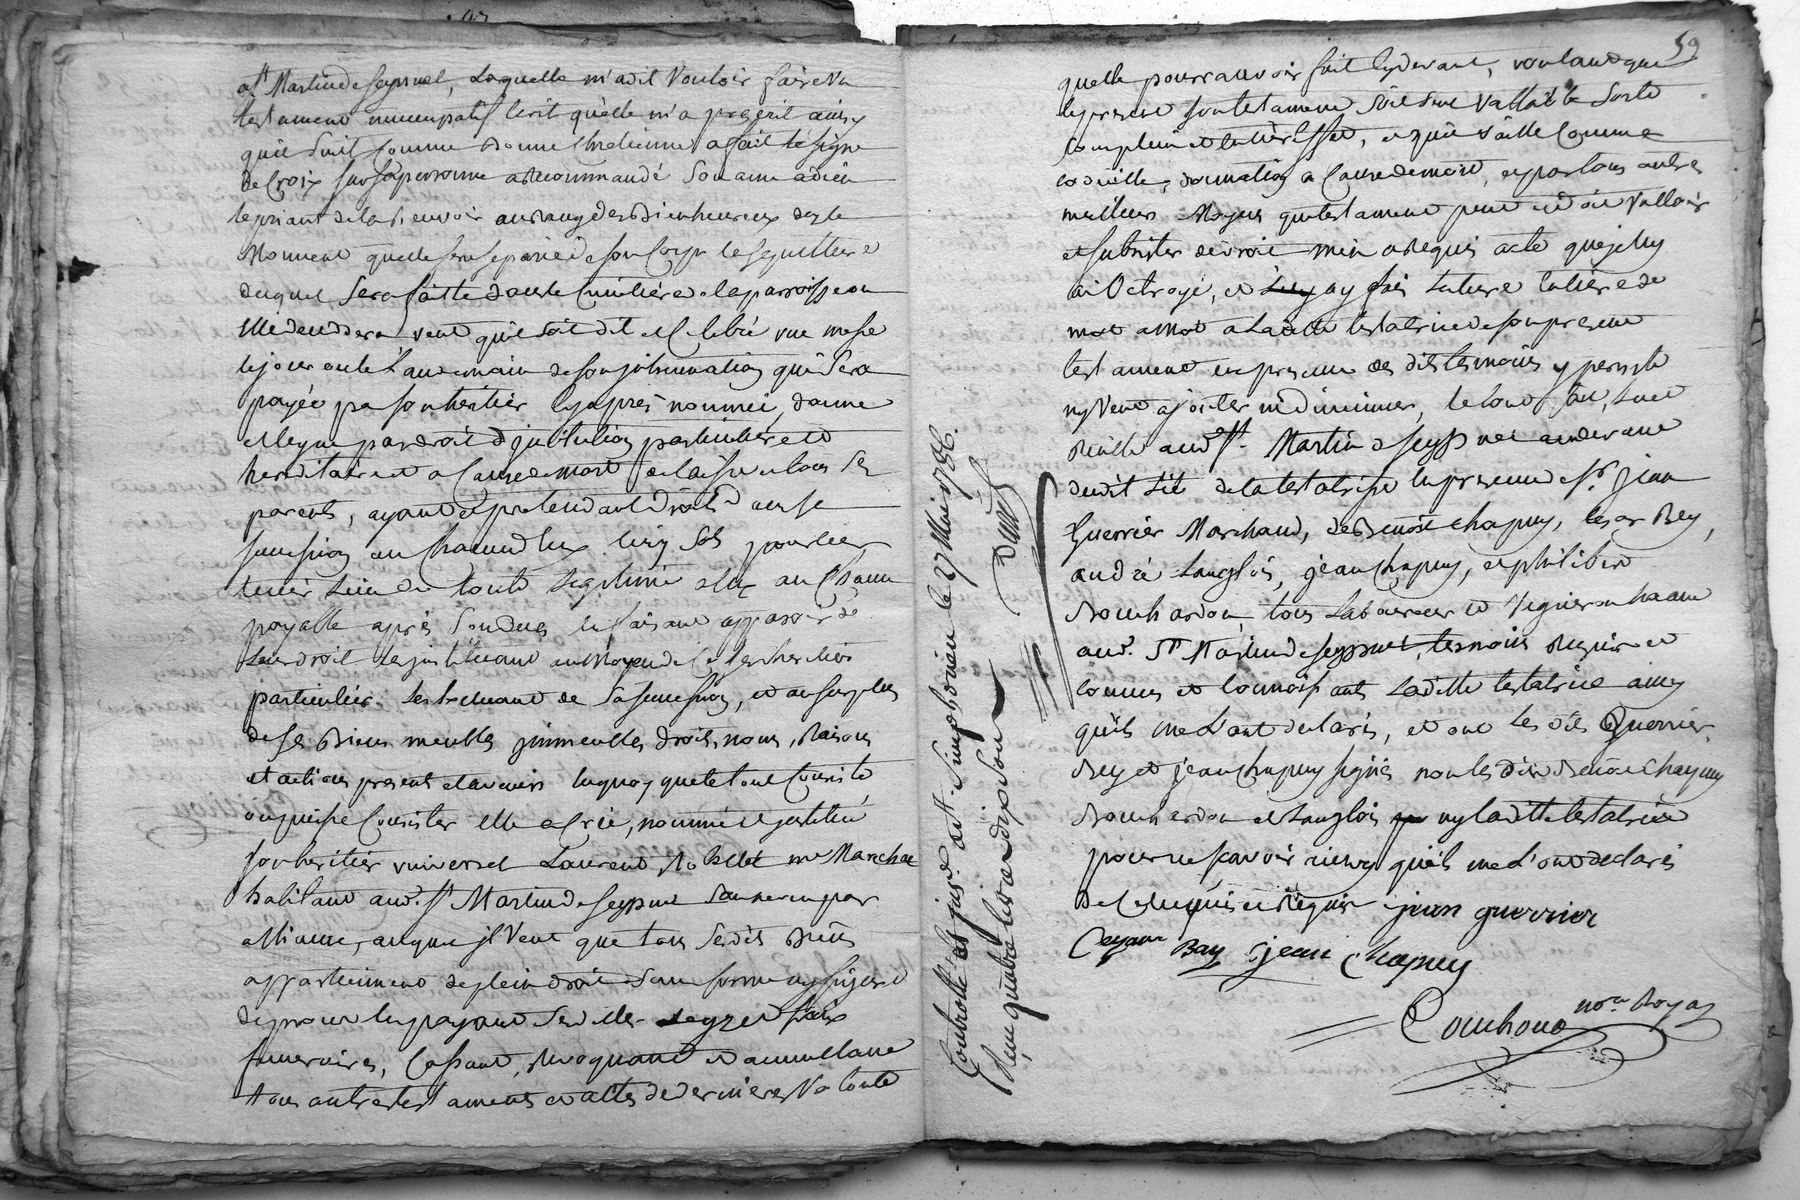 a St Martin de seyssuel, Laquelle m'a dit Vouloir faire Un
testament nuncupatif Ecrit quelle m'a prescrit ainsy
quil suit Comme bonne Chretienne a fait le signe
de Croix sur sa personne a recommandé son ame a dieu
le priant de la recevoir au rang des Bienheureux des le
Moment quelle sera separée de son Corps la sepulture
duquel sera faitte dans le Cimetiere de la parroisse ou
Elle decedera veut quil soit dit et Celebré une messe
le jour ou le Landemain de son inhumation qui sera
payée par son heritier Cy apres nommé, donne
et legue par droit d'institution particuliere et
hereditaire et a Cause de mort et laisse a tous ses
parents, ayant et pretendant droits a sa
succession a un Chacun d'eux Cinq sols pour leur
tenir Lieu de toute Legitime a eux a un Chacun
payable après son deces en faisant apparoir de
Leur droit les instituant au moyen de Ce ses heritiers
particuliers les excluant de sa succession, et au surplus
de ses Biens meubles immeubles droits, noms, Raisons
et actions presents et avenir en quoy que le tout Consiste
ou puisse Consister Elle a Crée, nommé et institué
son heritier universel Laurent Nobellet me Marechal
habitant aud. St Martin de seyssuel son neveu par
alliance, auquel il Veut que tous sesdits Biens
appartiennent de plein droit sans forme ny figure
de proces en payant sesdits Legs et fraix
funeraires, Cassant, Revoquant et annullant
tous autres testaments et actes de dernieres Volonté
59
quelle pourrait avoir fait Cy devant, voulant que
le present son testament soit seul Vallable sorte
son plein et entier Effet, et quil vaille Comme
codicille, donnation a Cause de mort, et par tous autres
meilleurs Moyens que testament peut et doit Valloir
et subsister de droit m'en a Requis acte que je luy
ai Octroyé, et Luy ay fait Lecture Entiere de
mot a mot a Ladite testatrice de son present
testament en presence des dits temoins y persiste
ny Veut ajouter ni diminuer, le tout fait, Lu et
Recité aud St. Martin de seyssuel au devant
du dit Lit de la testatrice En presence de sr. jean
Guerrier Marchand, de Benoit Chapuy, Cesar Bey,
andré Langlois, jean Chapuy, et philibert
Bouchardon, tous Laboureur et Vigneron habitant
aud. St Martin de seyssuel, temoins Requis et
Connus et Connoissants Laditte testatrice ainsy
quils me L'ont declaré, et ont les dits Guerrier
Bey et jean Chapuy signés non lesdits Benoit Chapuy
Bouchardon et Langlois ny laditte testatrice
pour ne sçavoir ainsy quils me L'ont declaré
de Ce Enquis et Requis jean guerrier
Cezard Bay jean Chapuy
Couchoud nore Royal
Controllé et jns. a St. Simphorien le 27 Mai 1786.
Reçu quatre livres dix sous